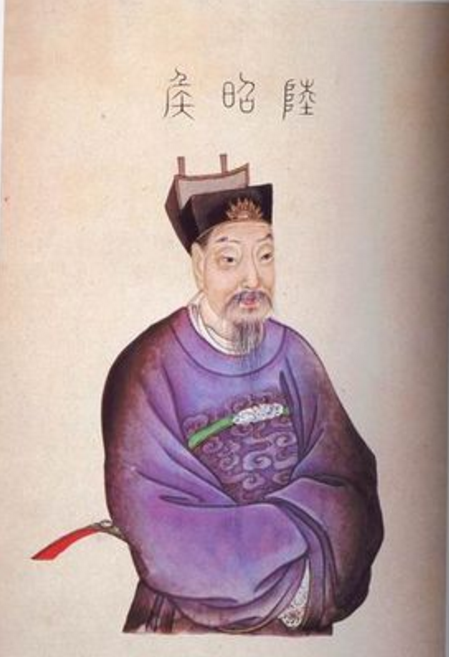 陸昭侯